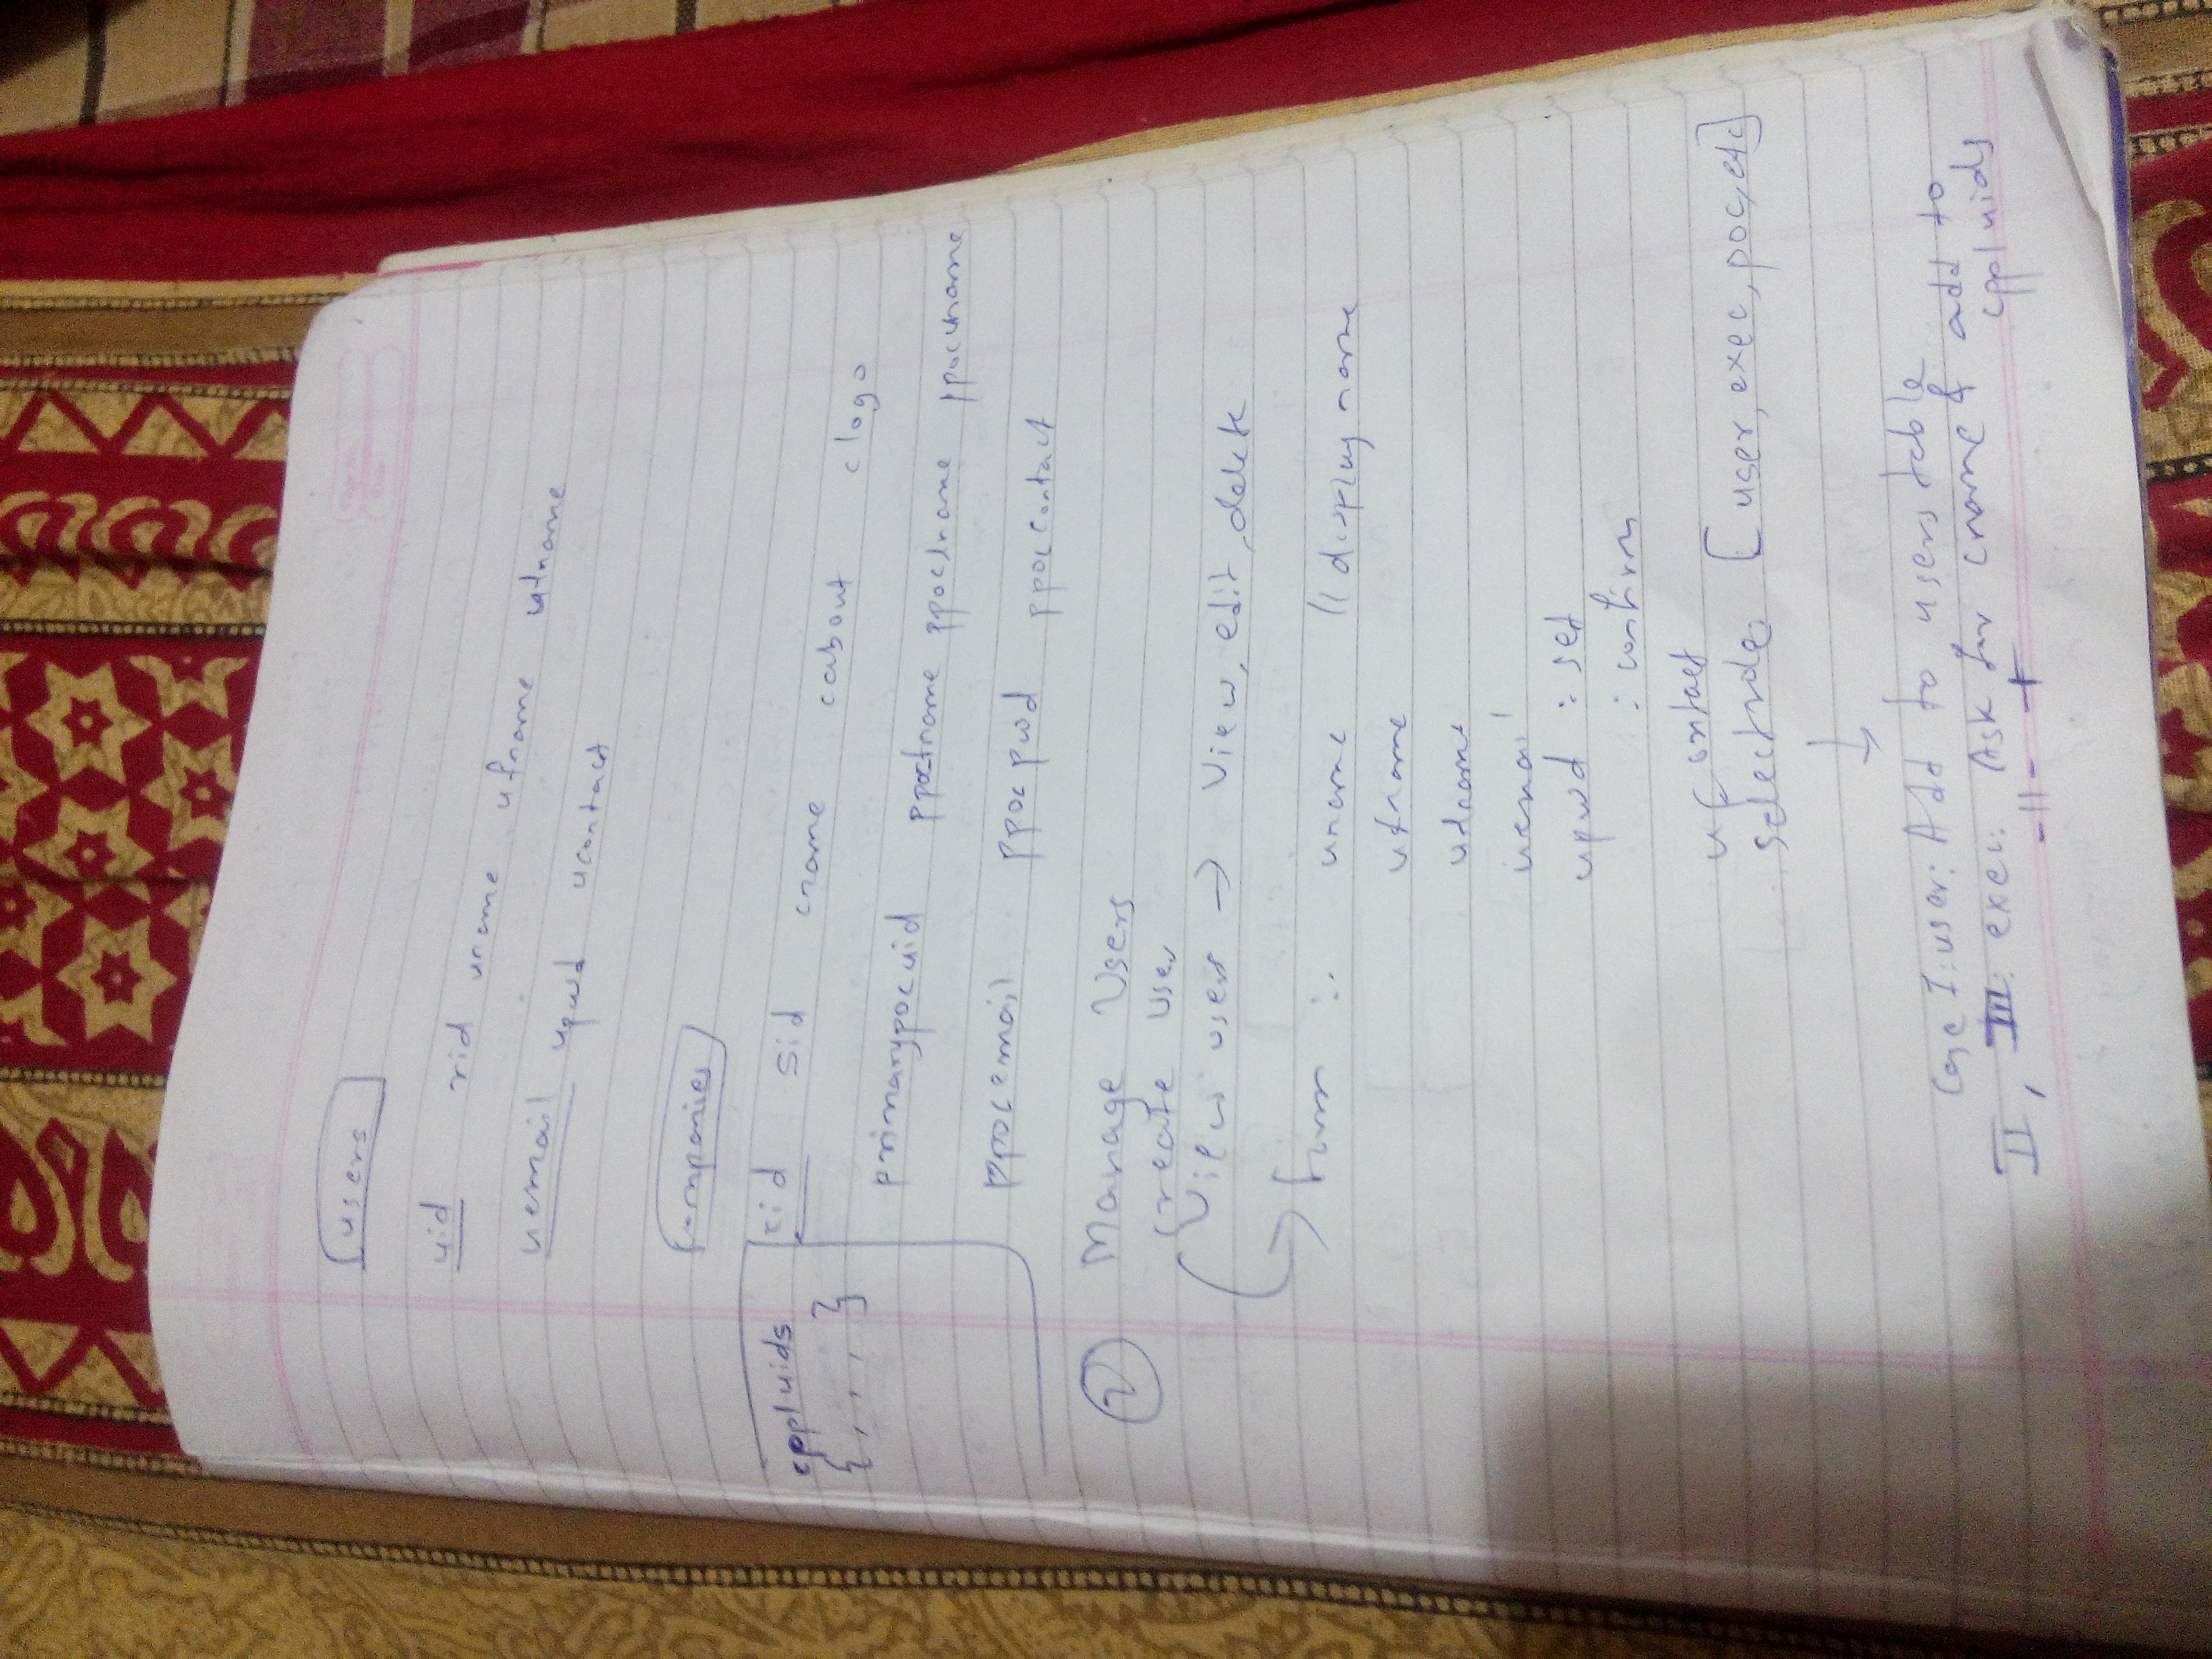 users
uid rid uname ufname utname
uemail upwd ucontact
companies
cid sid cname cabout clogo
cppluids
{ , , , , }
primarypocuid ppocfname ppoclname ppocuname
ppocemail ppocpwd ppoccontact
② Manage Users
Create user
View user → View, edit, delete
Form : uname // display name
ufname
ulname
uemail
upwd : set
: confirm
ucontact
select role [user, exec, poc, etc]
↓
Case I: user: Add to users table
III: exec: Ask for cname & add to
cppluids
II, -||- +